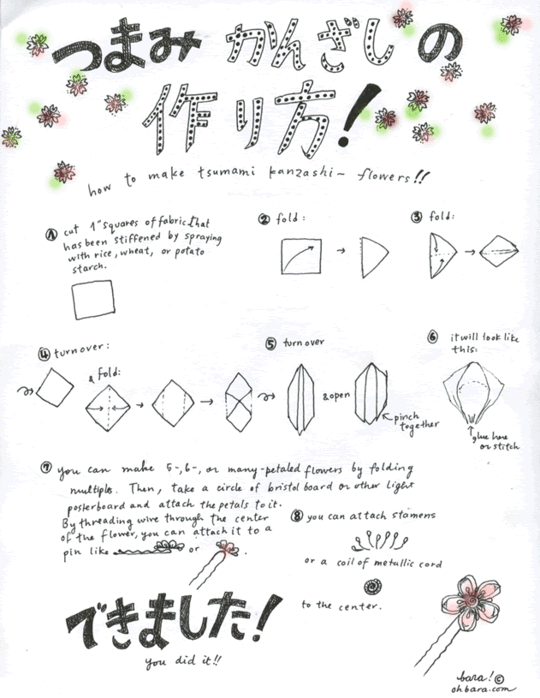 つまみ かんざし の
作り方!
how to make tsumami kanzashi~ flowers!!
① cut 1" squares of fabric that
has been stiffened by spraying
with rice, wheat, or potato
starch.
② fold:
③ fold:
④ turn over:
& fold:
⑤ turn over
& open
pinch
together
⑥ it will look like
this:
glue here
or stitch
⑦ you can make 5-, 6-, or many-petaled flowers by folding
multiple. Then, take a circle of bristol board or other light
posterboard and attach the petals to it.
By threading wire through the center
of the flower, you can attach it to a
pin like or .
⑧ you can attach stamens
or a coil of metallic cord
to the center.
できました!
you did it!!
bara! ©
ohbara.com